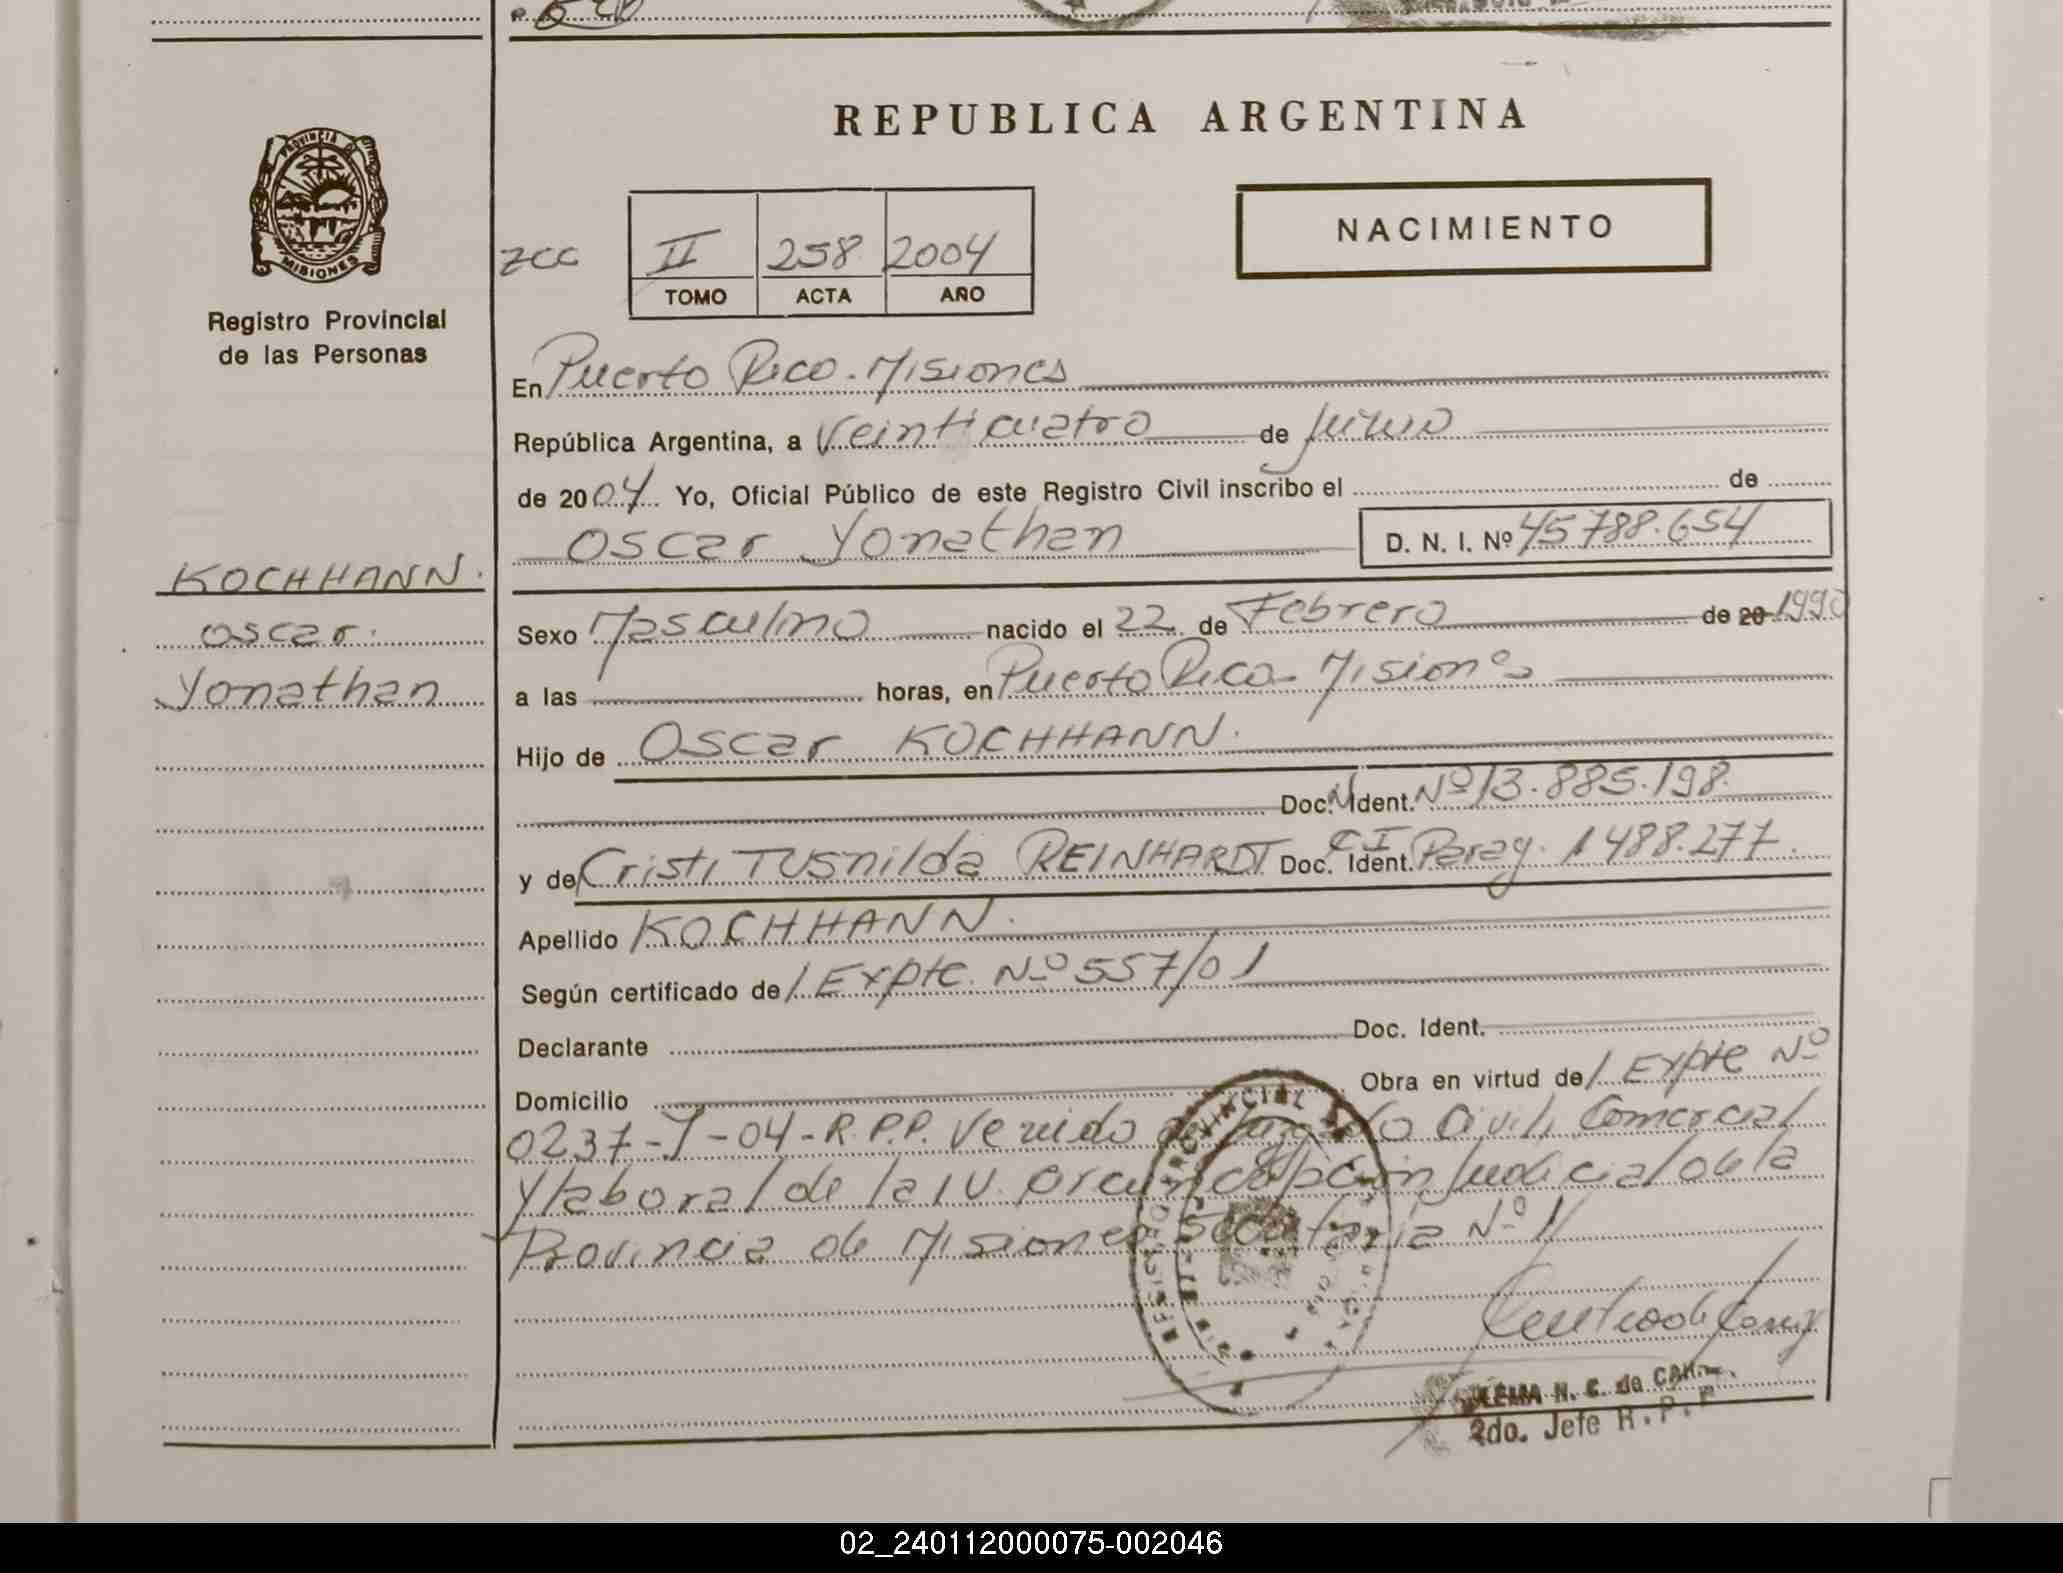 REPUBLICA ARGENTINA
PROVINCIA DE
MISIONES
Registro Provincial
de las Personas
NACIMIENTO
II 258 2004
TOMO ACTA AÑO
En Puerto Rico - Misiones
República Argentina, a Veinticuatro de Junio
de 2004 Yo, Oficial Público de este Registro Civil inscribo el de
Oscar Yonathan D. N. I. Nº 45788.654
KOCHHANN.
Oscar.
Yonathan
Sexo Masculino nacido el 22 de Febrero de 20 1990
a las horas, en Puerto Rico - Misiones
Hijo de Oscar KOCHHANN.
Doc. Ident. Nº 13.885.198.
y de Cristi Tusnilda REINHARDT Doc. C I Ident. Parag. 1488.277.
Apellido KOCHHANN.
Según certificado de / Expte. Nº 557/01
Declarante Doc. Ident.
Domicilio Obra en virtud de / Expte Nº
0237-J-04-R.P.P. Venido del Juzgado Civil, Comercial
y laboral de la IV. Circunscripción Judicial de la
Provincia de Misiones Secretaría Nº 1
N. C. de
2do. Jefe R. P. P
02_240112000075-002046